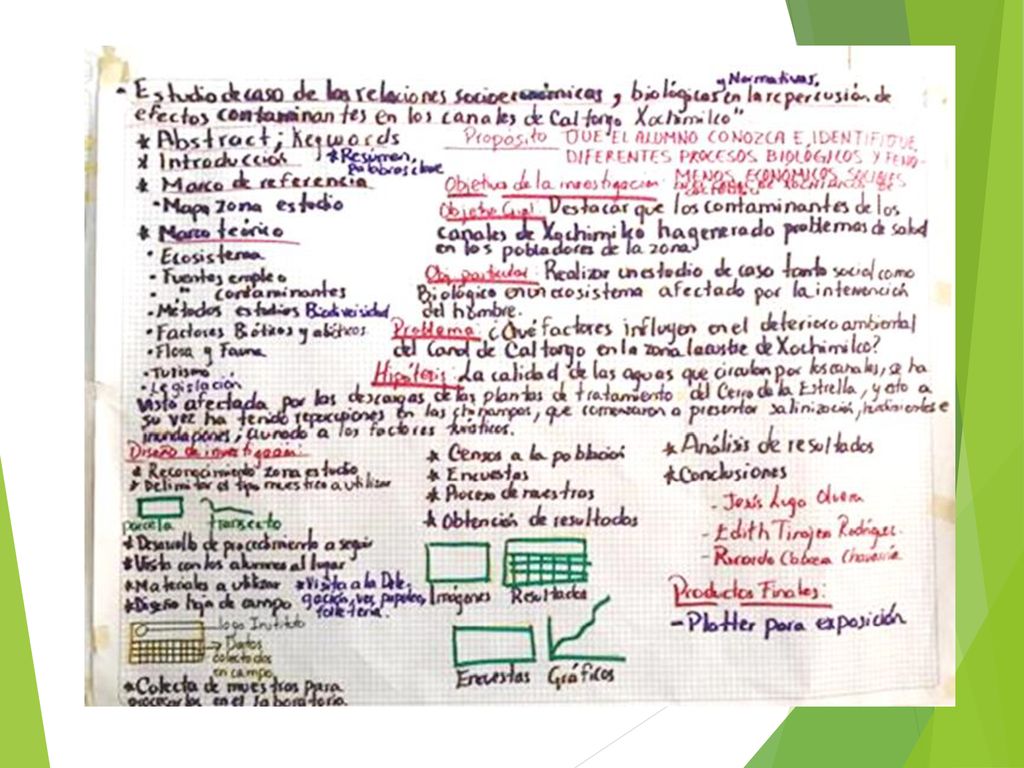 y Normativas,
• Estudio de caso de las relaciones socioeconómicas, biológicas en la repercusión de
efectos contaminantes en los canales de Caltongo Xochimilco"
* Abstract; Keywords
* Resumen, palabras clave
* Introducción
* Marco de referencia
• Mapa zona estudio
* Marco teórico
• Ecosistema
• Fuentes empleo
• " contaminantes
• Métodos estudios Biodiversidad
• Factores Bióticos y abióticos
• Flora y Fauna
• Turismo
• Legislación
Propósito QUE EL ALUMNO CONOZCA E IDENTIFIQUE
DIFERENTES PROCESOS BIOLÓGICOS Y FENÓ-
MENOS ECONOMICOS, SOCIALES
Objetivo de la investigación:
Objetivo Gral: Destacar que los contaminantes de los
canales de Xochimilco ha generado problemas de salud
en los pobladores de la zona
Obj particular: Realizar un estudio de caso tanto social como
Biológico en un ecosistema afectado por la intervención
del hombre.
Problema: ¿Qué factores influyen en el deterioro ambiental
del Canal de Caltongo en la zona lacustre de Xochimilco?
Hipótesis: La calidad de las aguas que circulan por los canales, se ha
visto afectada por las descargas de las plantas de tratamiento del Cerro de la Estrella, y esto a
su vez ha tenido repercusiones en las chinampas, que comenzaron a presentar salinización, hundimientos e
inundaciones, aunado a los factores turísticos.
Diseño de investigación:
* Reconocimiento zona estudio
* Delimitar el tipo muestreo a utilizar
parcela transecto
* Desarrollo de procedimiento a seguir
* Visita con los alumnos al lugar
* Materiales a utilizar
* Visita a la Dele-
gación, ver papeles,
folletería.
* Diseño hoja de campo
logo Instituto
→ Datos
colectados
en campo
* Colecta de muestras para
procesarlas en el laboratorio.
* Censos a la población
* Encuestas
* Proceso de muestras
* Obtención de resultados
Imágenes Resultados
Encuestas Gráficos
* Análisis de resultados
* Conclusiones
- Jesús Lugo Olvera
- Edith Tinajero Rodríguez.
- Ricardo Cabrera Chavarría
Productos Finales:
- Plotter para exposición